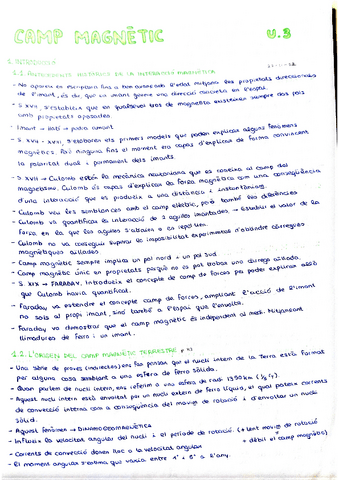 CAMP MAGNÈTIC U.3
1. INTRODUCCIÓ
1.1. ANTECEDENTS HISTÒRICS DE LA INTERACCIÓ MAGNÈTICA
- No apareix en Europa fins a ben avançada l'edat mitjana les propietats direccionals
de l'imant, és dir, que un imant gira una direcció concreta en l'espai.
- S. XVII, s'estableix que en qualsevol tros de magnetita existeixen sempre dos pols
amb propietats oposades.
- Imant → pedra imant
- S. XVII - XVIII, s'elaboren els primers models que poden explicar alguns fenòmens
magnètics. Però ninguna fins el moment era capaç d'explicar de forma convincent
la polaritat dual i permanent dels imants.
- S. XVIII → Coulomb estén la mecànica newtoniana que es realitza al camp del
magnetisme. Coulomb és capaç d'explicar la força magnètica com una conseqüència
d'una interacció que es produeix a una distància i instantània.
- Coulomb veu les semblances amb el camp elèctric, però també les diferències
- Coulomb va quantificar la interacció de 2 agulles imantades → establir el valor de la
força en la que les agulles s'atrauen o es repel·lien.
- Coulomb no va aconseguir superar la impossibilitat experimental d'obtindre càrregues
magnètiques aïllades
- Camp magnètic sempre implica un pol nord + un pol sud
- Camp magnètic únic en propietats perquè no es pot trobar una càrrega aïllada.
- S. XIX → FARADAY. Introdueix el concepte de camp de forces per poder explicar allò
que Coulomb havia quantificat.
- Faraday va estendre el concepte camp de forces, ampliant l'acció de l'imant
no sols al propi imant, sinó també a l'espai que l'envolta.
- Faraday va demostrar que el camp magnètic és independent al medi. Mitjançant
llimadures de ferro i un imant.
1.2. L'ORIGEN DEL CAMP MAGNÈTIC TERRESTRE
- Una sèrie de proves (indirectes) ens fan pensar que el nucli intern de la Terra està format
per alguna cosa semblant a una esfera de ferro sòlida.
- Quan parlem de nucli intern, ens referim a una esfera de radi 1390 km
- Aquest nucli intern està envoltat per un nucli extern de ferro líquid, el qual pateix corrents
de convecció interna com a conseqüència del movim. de rotació i d'envoltar un nucli
sòlid.
- Aquest fenomen → DINAMO GEOMAGNÈTICA
- Influeix la velocitat angular del nucli i el període de rotació. (+ lent movim. de rotació
- Corrents de convecció donen lloc a la velocitat angular + dèbil el camp magnètic)
- El moment angular s'estima que varia entre 1° i 6° a l'any.